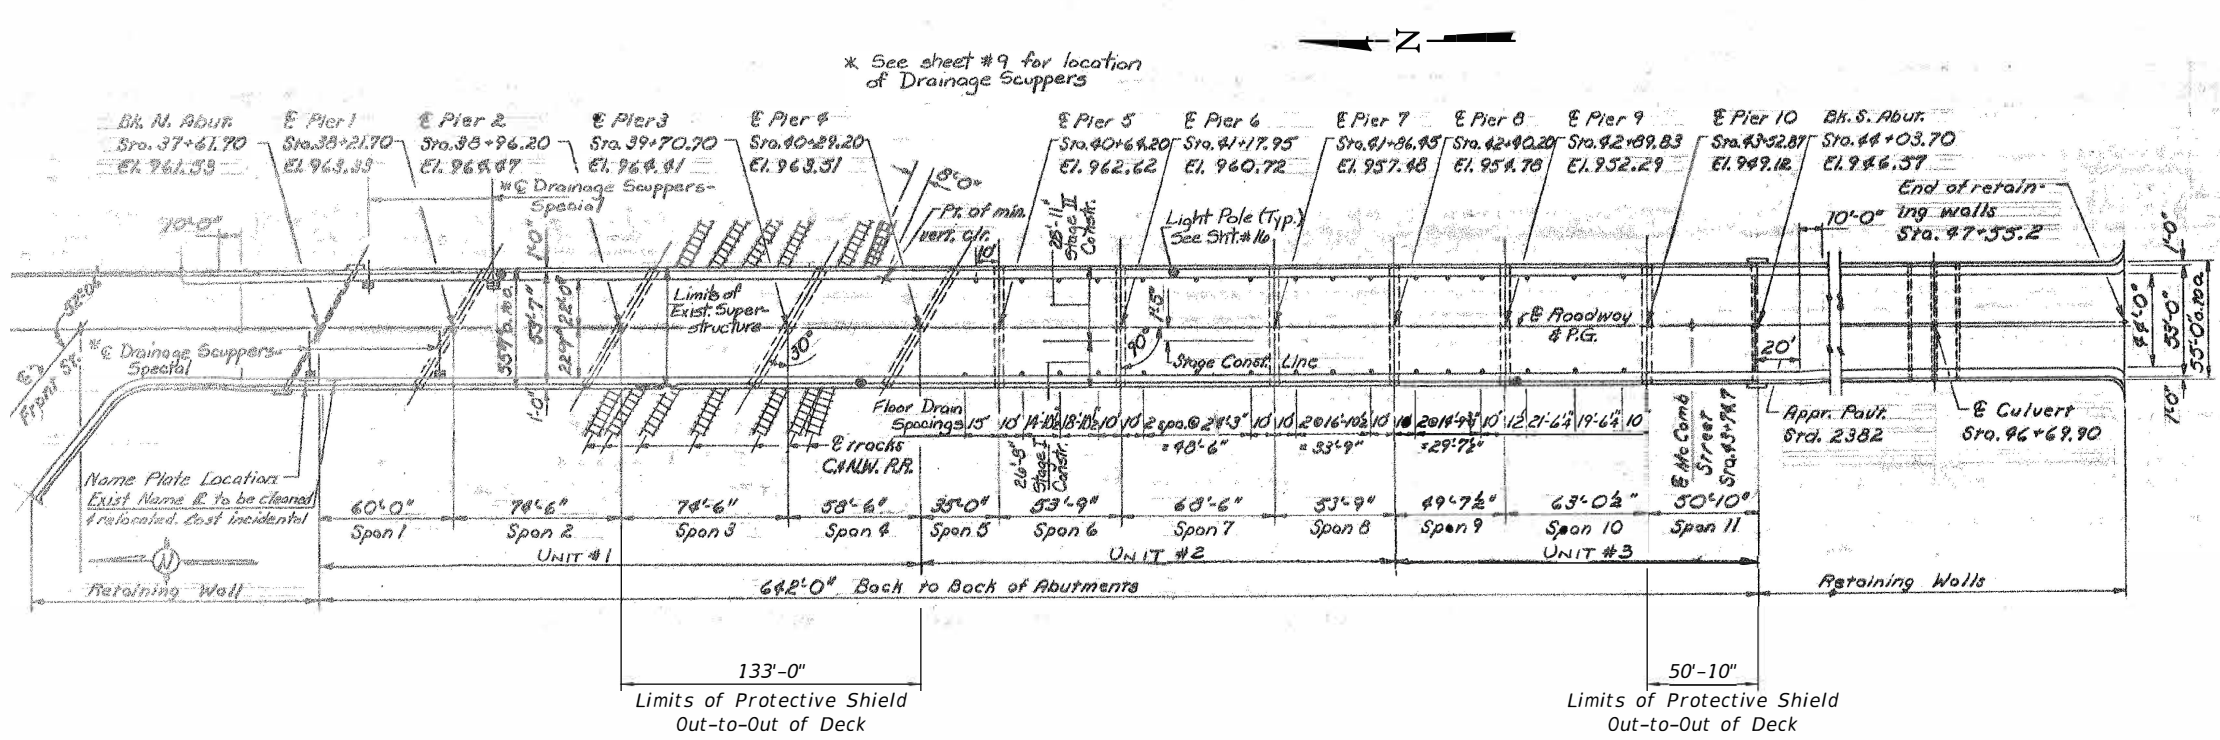 N
* See sheet #9 for location
of Drainage Scuppers
Bk. N. Abut.
Sta. 37+61.70
El. 961.53
℄ Pier 1
Sta. 38+21.70
El. 963.33
℄ Pier 2
Sta. 38+96.20
El. 964.47
℄ Pier 3
Sta. 39+70.70
El. 964.41
℄ Pier 4
Sta. 40+29.20
El. 963.51
℄ Pier 5
Sta. 40+64.20
El. 962.62
℄ Pier 6
Sta. 41+17.95
El. 960.72
℄ Pier 7
Sta. 41+86.45
El. 957.48
℄ Pier 8
Sta. 42+40.20
El. 954.78
℄ Pier 9
Sta. 42+89.83
El. 952.29
℄ Pier 10
Sta. 43+52.87
El. 949.12
Bk. S. Abut.
Sta. 44+03.70
El. 946.57
End of retain-
ing walls
Sta. 47+55.2
*℄ Drainage Scuppers-
Special
70'-0"
1'-0"
8'-0"
Pt. of min.
vert. clr.
10'
28'-11"
Stage II
Constr.
Light Pole (Typ.)
See Sht. #16
10'-0"
1'-0"
Limits of
Exist. Super-
structure
53'-7"
22'-0"
1'-5"
℄ Roadway
& P.G.
44'-0"
53'-0"
55'-0" o. to o.
℄
Front St.
*℄ Drainage Scuppers-
Special
30°
90°
Stage Const. Line
20'
1'-0"
1'-0"
Floor Drain
Spacings
15' 10' 14'-10½" 18'-10½" 10' 10' 2 spa. @ 24'-3" 10' 10' 2@16'-10½" 10' 10' 2@14'-9¾" 10' 12' 21'-6¼" 19'-6¼" 10'
= 48'-6"
= 33'-9"
= 29'-7½"
℄ tracks
C.&N.W. R.R.
26'-8"
Stage I
Constr.
℄ McComb
Street
Appr. Pav't.
Std. 2382
℄ Culvert
Sta. 46+69.90
Name Plate Location
Exist Name ℄ to be cleaned
& relocated. Cost incidental
60'-0"
Span 1
74'-6"
Span 2
74'-6"
Span 3
58'-6"
Span 4
35'-0"
Span 5
53'-9"
Span 6
68'-6"
Span 7
53'-9"
Span 8
49'-7½"
Span 9
63'-0½"
Span 10
50'-10"
Span 11
N
UNIT #1
UNIT #2
UNIT #3
Retaining Wall
642'-0" Back to Back of Abutments
Retaining Walls
133'-0"
Limits of Protective Shield
Out-to-Out of Deck
50'-10"
Limits of Protective Shield
Out-to-Out of Deck